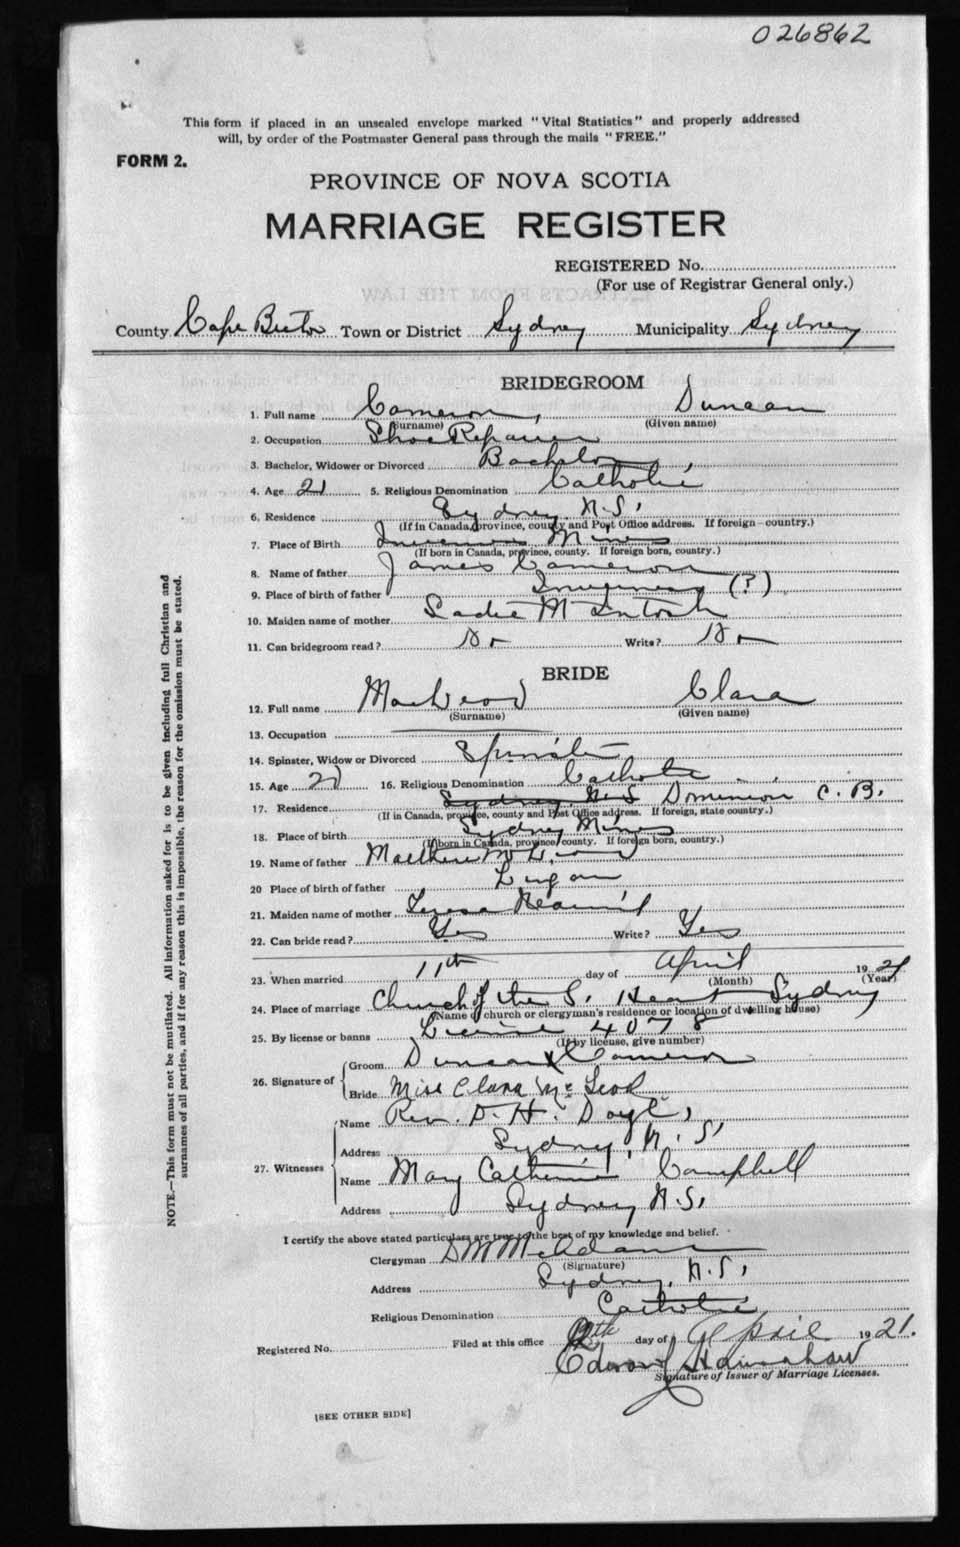 026862
This form if placed in an unsealed envelope marked "Vital Statistics" and properly addressed
will, by order of the Postmaster General pass through the mails "FREE."
FORM 2.
PROVINCE OF NOVA SCOTIA
MARRIAGE REGISTER
REGISTERED No.
(For use of Registrar General only.)
County Cape Breton Town or District Sydney Municipality Sydney
BRIDEGROOM
1. Full name Cameron, Duncan
(Surname) (Given name)
2. Occupation Shoe Repairer
3. Bachelor, Widower or Divorced Bachelor
4. Age 21 5. Religious Denomination Catholic
6. Residence Sydney, N.S.
(If in Canada, province, county and Post Office address. If foreign—country.)
7. Place of Birth Inverness Mines
(If born in Canada, province, county. If foreign born, country.)
8. Name of father James Cameron
9. Place of birth of father (?)
10. Maiden name of mother Sadie McIntosh
11. Can bridegroom read? No Write? No
BRIDE
12. Full name MacLeod Clara
(Surname) (Given name)
13. Occupation
14. Spinster, Widow or Divorced Spinster
15. Age 21 16. Religious Denomination Catholic
17. Residence Sydney, N.S Dominion C.B.
(If in Canada, province, county and Post Office address. If foreign, state country.)
18. Place of birth Sydney Mines
(If born in Canada, province, county. If foreign born, country.)
19. Name of father Matthew McLeod
20 Place of birth of father Lingan
21. Maiden name of mother Teresa
22. Can bride read? Yes Write? Yes
23. When married 11th day of April 1921
(Month) (Year)
24. Place of marriage Church of the S. Heart Sydney
(Name of church or clergyman's residence or location of dwelling house)
25. By license or banns License 4078
(If by license, give number)
26. Signature of
Groom Duncan X Cameron
Bride Miss Clara McLeod
27. Witnesses
Name Rev. D. H. Doyle,
Address Sydney, N.S.
Name Mary Catherine Campbell
Address Sydney N.S.
I certify the above stated particulars are true to the best of my knowledge and belief.
Clergyman D M McAdam
(Signature)
Address Sydney, N.S.
Religious Denomination Catholic
Registered No. Filed at this office 12th day of April 1921.
Signature of Issuer of Marriage Licenses.
[SEE OTHER SIDE]
NOTE.—This form must not be mutilated. All information asked for is to be given including full Christian and
surnames of all parties, and if for any reason this is impossible, the reason for the omission must be stated.